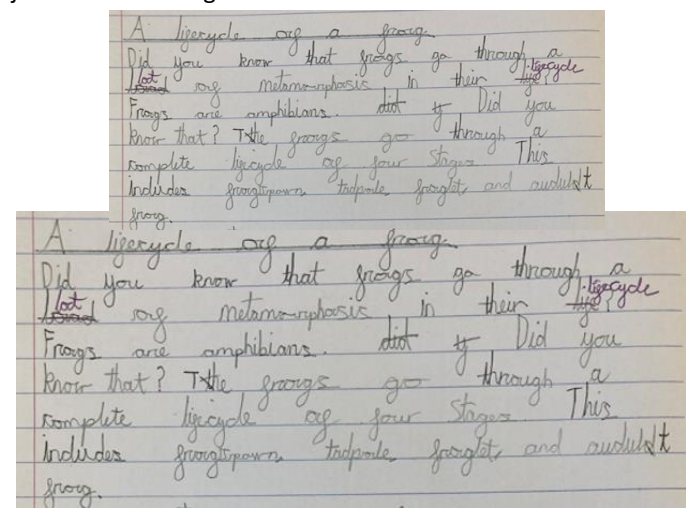 A lifecycle of a frog.
Did you know that frogs go through a
lot of metamorphosis in their lifecycle
Frogs are amphibians. Did you
know that? The frogs go through a
complete lifecycle of four stages. This
includes frogspawn tadpole froglet, and adult
frog.
A lifecycle of a frog.
Did you know that frogs go through a
lot of metamorphosis in their lifecycle
Frogs are amphibians. Did you
know that? The frogs go through a
complete lifecycle of four stages. This
includes frogspawn tadpole froglet, and adult
frog.